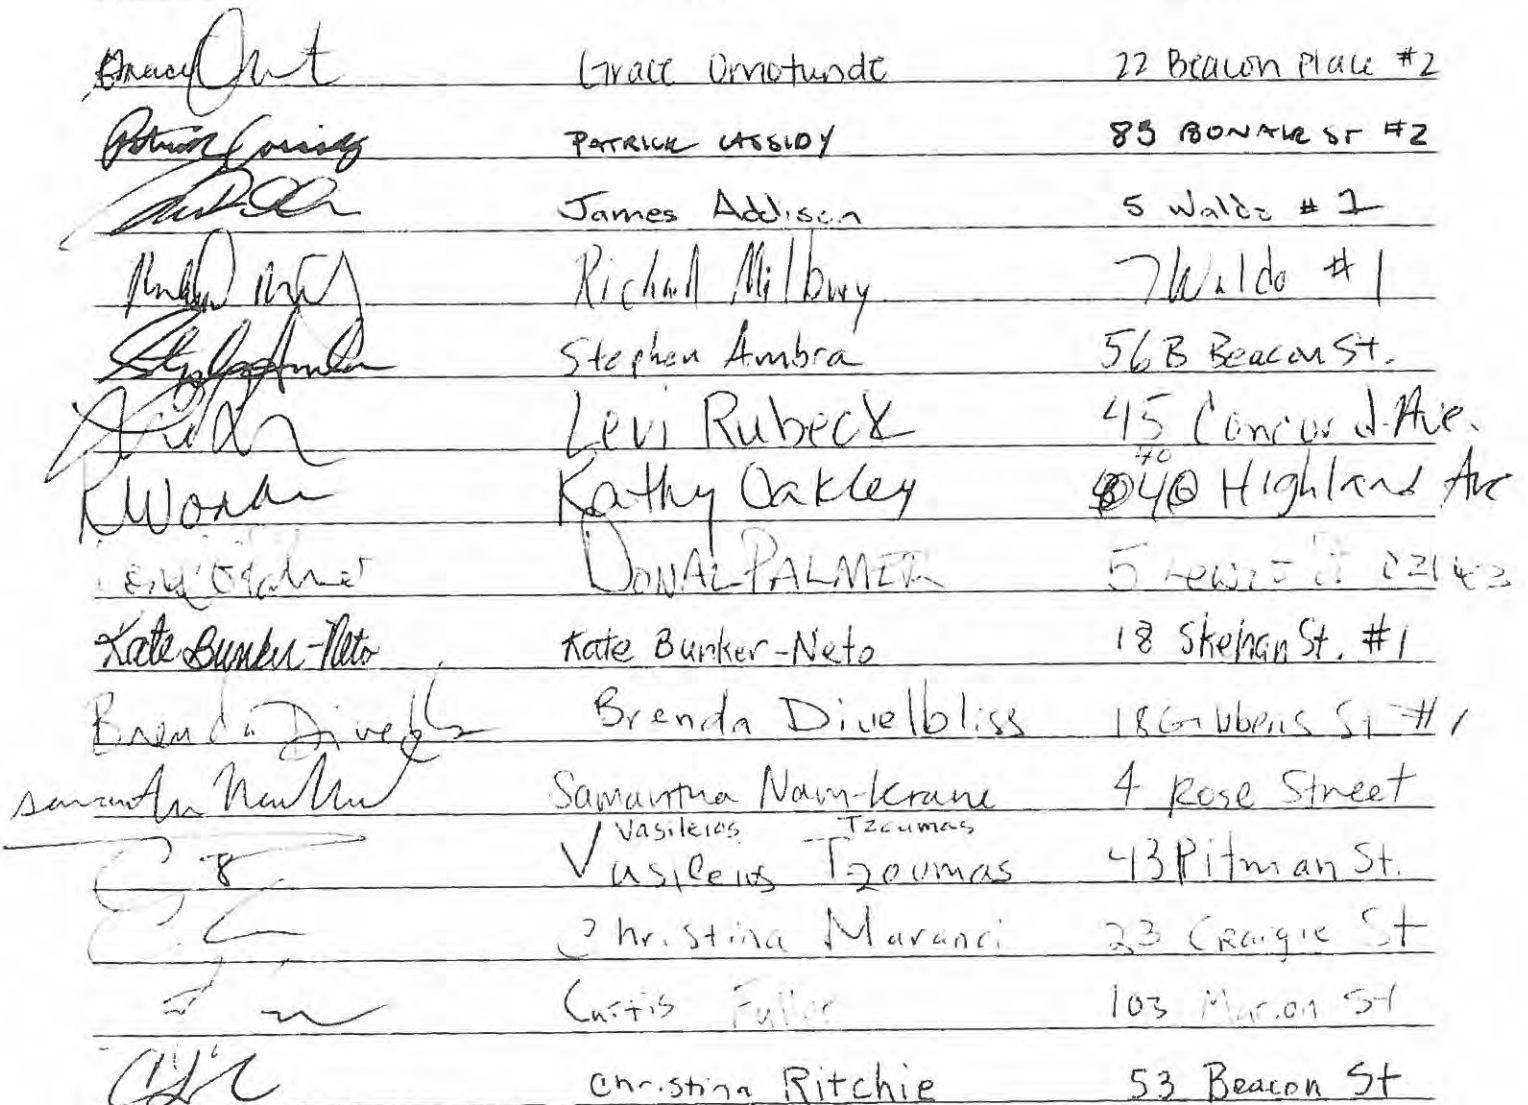 Grace Omotunde 22 Beacon Place #2
PATRICK CASSIDY 83 BONAIR ST #2
James Addison 5 Waldo # 1
Richard Milbury 7 Waldo # 1
Stephen Ambra 56B Beacon St.
Levi Rubeck 45 Concord Ave.
Kathy Oakley 70 Highland Ave
DONAL PALMER 5 Lewis St 02143
Kate Bunker-Neto Kate Bunker-Neto 18 Skehan St. #1
Brenda Divelbliss 18 Gibbens St #1
Samantha Nam-Krane 4 Rose Street
Vasileios Tzoumas
Vasileios Tzoumas 43 Pitman St.
Christina Maranci 23 Craigie St
Curtis Fuller 103 Marion St
Christina Ritchie 53 Beacon St